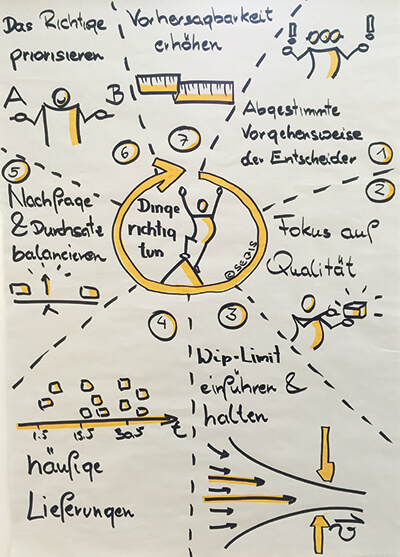 Das Richtige
priorisieren
A
B
6
Vorhersagbarkeit
erhöhen
7
Abgestimmte
Vorgehensweise
der Entscheider
1
2
Fokus auf
Qualität
3
Wip-Limit
einführen &
halten
4
1.5
15.5
30.5
t
häufige
Lieferungen
5
Nachfrage
& Durchsatz
balancieren
Dinge
richtig
tun